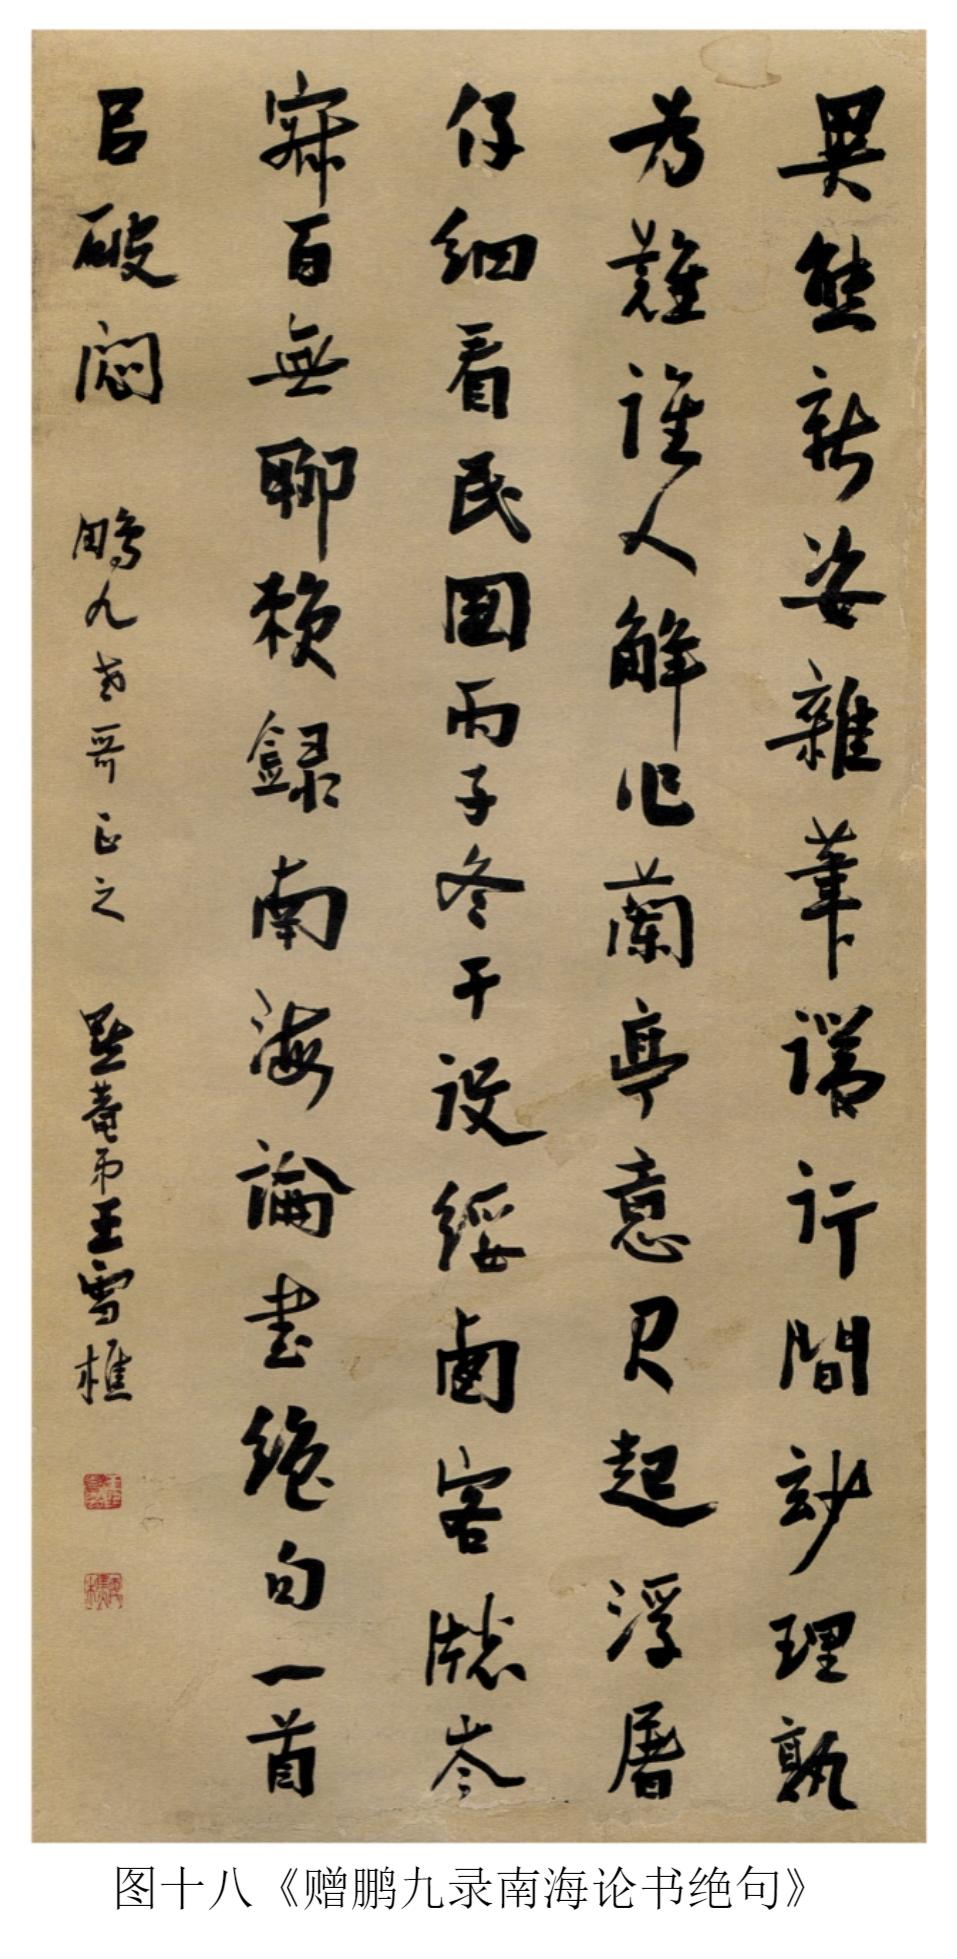 異態新姿雜筆端行間妙理孰
为難誰人解作蘭亭意起浮屠
仔細看民國丙子冬于役綏鹵客牕岑
寂百無聊賴録南海論書絶句一首
㠯破悶 鵬九老哥正之 默菴弟王雪樵
图十八《赠鹏九录南海论书绝句》